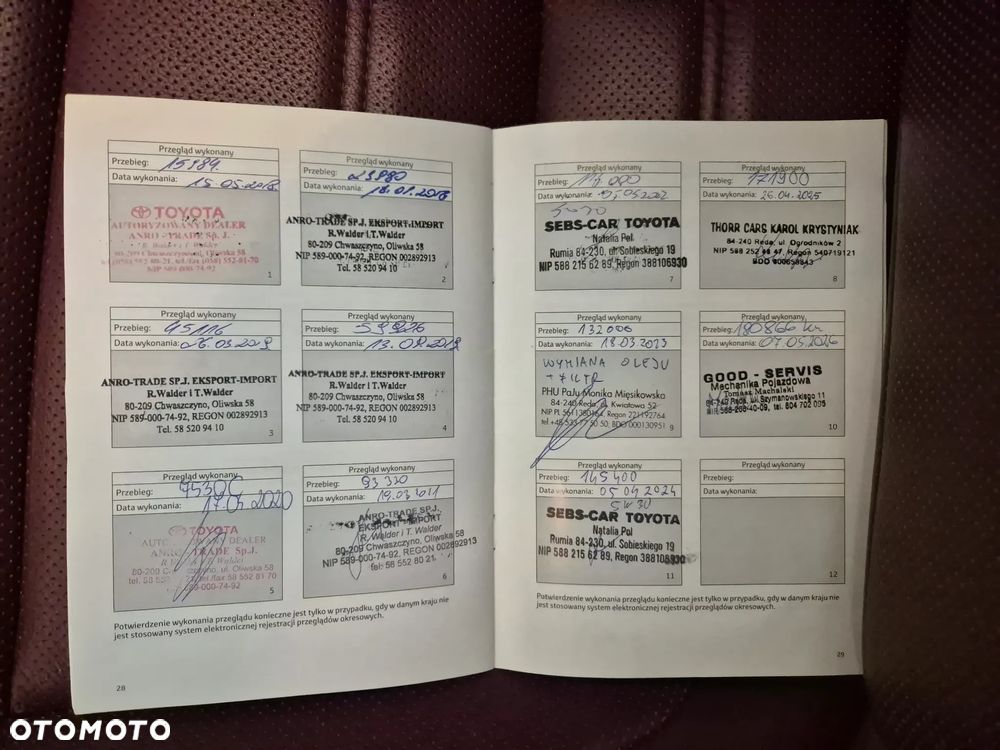 Przegląd wykonany
Przebieg: 15984
Data wykonania: 15.05.2018
TOYOTA
AUTORYZOWANY DEALER
ANRO - TRADE Sp. J.
NIP 589-000-74-92
1
Przegląd wykonany
Przebieg: 29980
Data wykonania:
ANRO-TRADE SP.J. EKSPORT-IMPORT
R.Walder i T.Walder
80-209 Chwaszczyno, Oliwska 58
NIP 589-000-74-92, REGON 002892913
Tel. 58 520 94 10
2
Przegląd wykonany
Przebieg: 45116
Data wykonania: 26.03.2019
ANRO-TRADE SP.J. EKSPORT-IMPORT
R.Walder i T.Walder
80-209 Chwaszczyno, Oliwska 58
NIP 589-000-74-92, REGON 002892913
Tel. 58 520 94 10
3
Przegląd wykonany
Przebieg: 59926
Data wykonania: 13.09.2019
ANRO-TRADE SP.J. EKSPORT-IMPORT
R.Walder i T.Walder
80-209 Chwaszczyno, Oliwska 58
NIP 589-000-74-92, REGON 002892913
Tel. 58 520 94 10
4
Przegląd wykonany
Przebieg: 75306
Data wykonania: 2020
TOYOTA
DEALER
ANRO - TRADE Sp.J.
80-209 Chwaszczyno, ul Oliwska 58
tel/fax 58 552 81 70
5
Przegląd wykonany
Przebieg: 93 320
Data wykonania: 19.03
ANRO-TRADE SP.J.
EKSPORT-IMPORT
R. Walder i T. Walder
80-209 Chwaszczyno, Oliwska 58
NIP 589-000-74-92, REGON 002892913
tel: 58 552 80 21
6
Potwierdzenie wykonania przeglądu konieczne jest tylko w przypadku, gdy w danym kraju nie
jest stosowany system elektronicznej rejestracji przeglądów okresowych.
28
Przegląd wykonany
Przebieg:
Data wykonania: 05.2022
5W30
SEBS-CAR TOYOTA
Natalia Pol
Rumia 84-230, ul. Sobieskiego 19
NIP 588 215 62 89, Regon 388106930
7
Przegląd wykonany
Przebieg: 171900
Data wykonania: 26.04.2025
THORR CARS KAROL KRYSTYNIAK
84-240 Reda, ul. Ogrodników 2
NIP 588 252 48 47, Regon 540719121
BDO
8
Przegląd wykonany
Przebieg: 132000
Data wykonania: 18.03.2023
WYMIANA OLEJU
+ FILTR
PHU PaJu Monika Mięsikowska
84-240 Reda, ul. Kwiatowa 52
NIP PL 5611380164, Regon 221192764
tel +48 533 77 50 50, BDO 000130951
9
Przegląd wykonany
Przebieg: 180866 km
Data wykonania: 07.05.2026
GOOD - SERVIS
Mechanika Pojazdowa
Tomasz Machalski
84-240 Reda, ul. Szymanowskiego 11
NIP 588-208-40-09, tel. 604 702 095
10
Przegląd wykonany
Przebieg: 145400
Data wykonania: 05 04 2024
5W30
SEBS-CAR TOYOTA
Natalia Pol
Rumia 84-230, ul. Sobieskiego 19
NIP 588 215 62 89, Regon 388106930
11
Przegląd wykonany
Przebieg:
Data wykonania:
12
Potwierdzenie wykonania przeglądu konieczne jest tylko w przypadku, gdy w danym kraju nie
jest stosowany system elektronicznej rejestracji przeglądów okresowych.
29
OTOMOTO